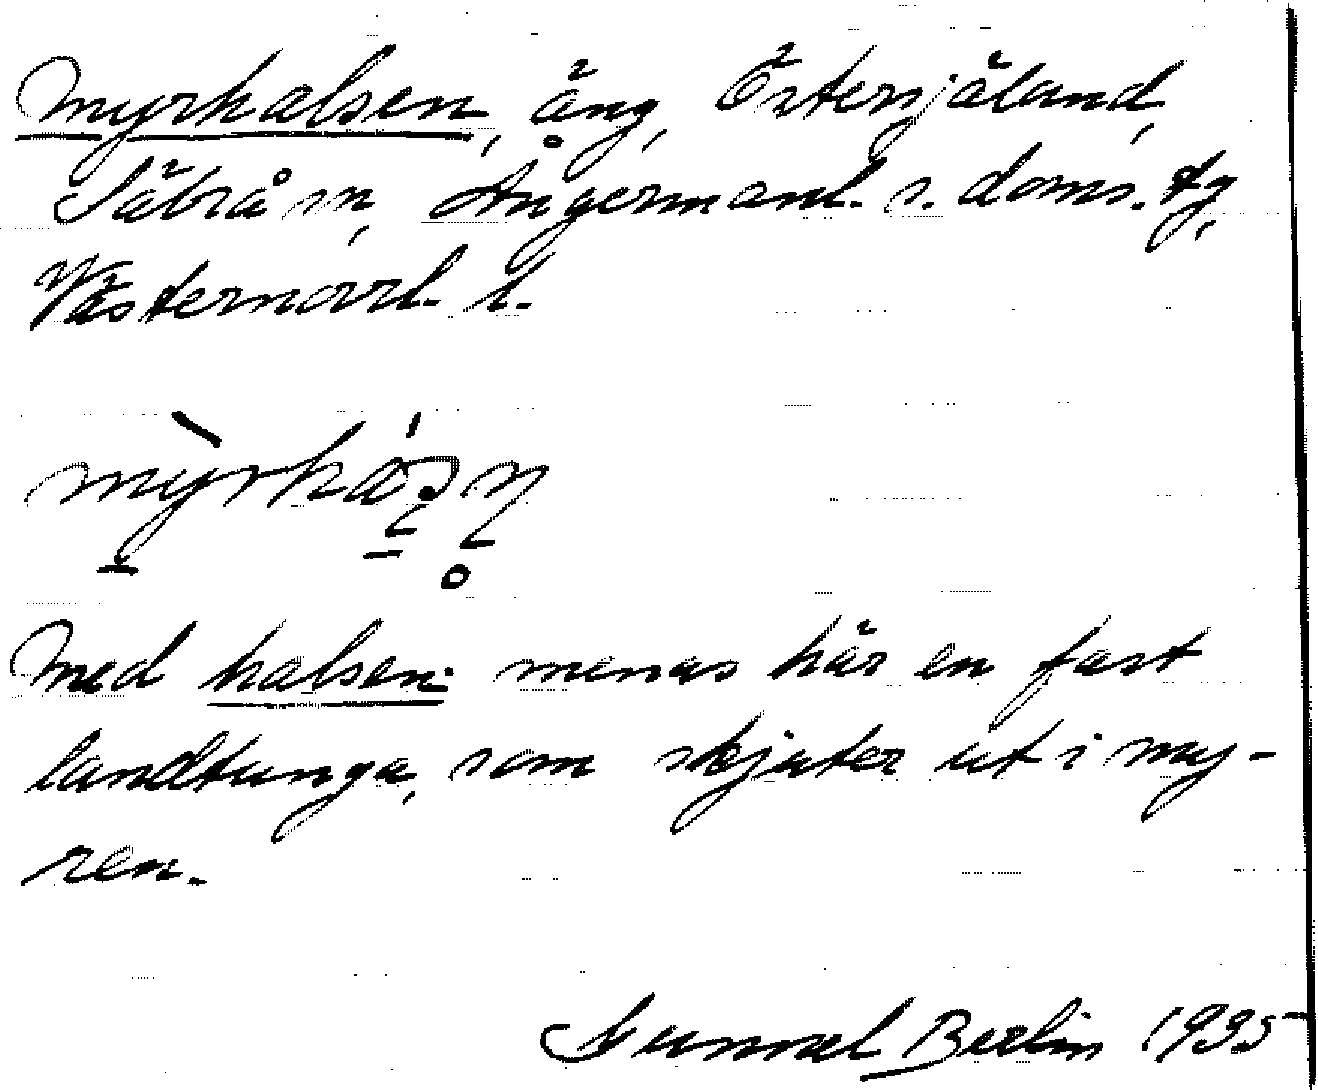 Myrhalsen, äng, Östersjäland,
Säbrå sn, Ångermanl. s. doms. tg,
Västernorrl. l.
Med halsen menas här en fast
landtunga, som skjuter ut i my-
ren.
Gunnel Berlin 1935